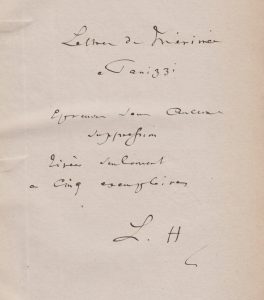 Lettres de Mérimée
a Panizzi
Epreuves sans aucune
suppression
tirées seulement
a cinq exemplaires
L. H